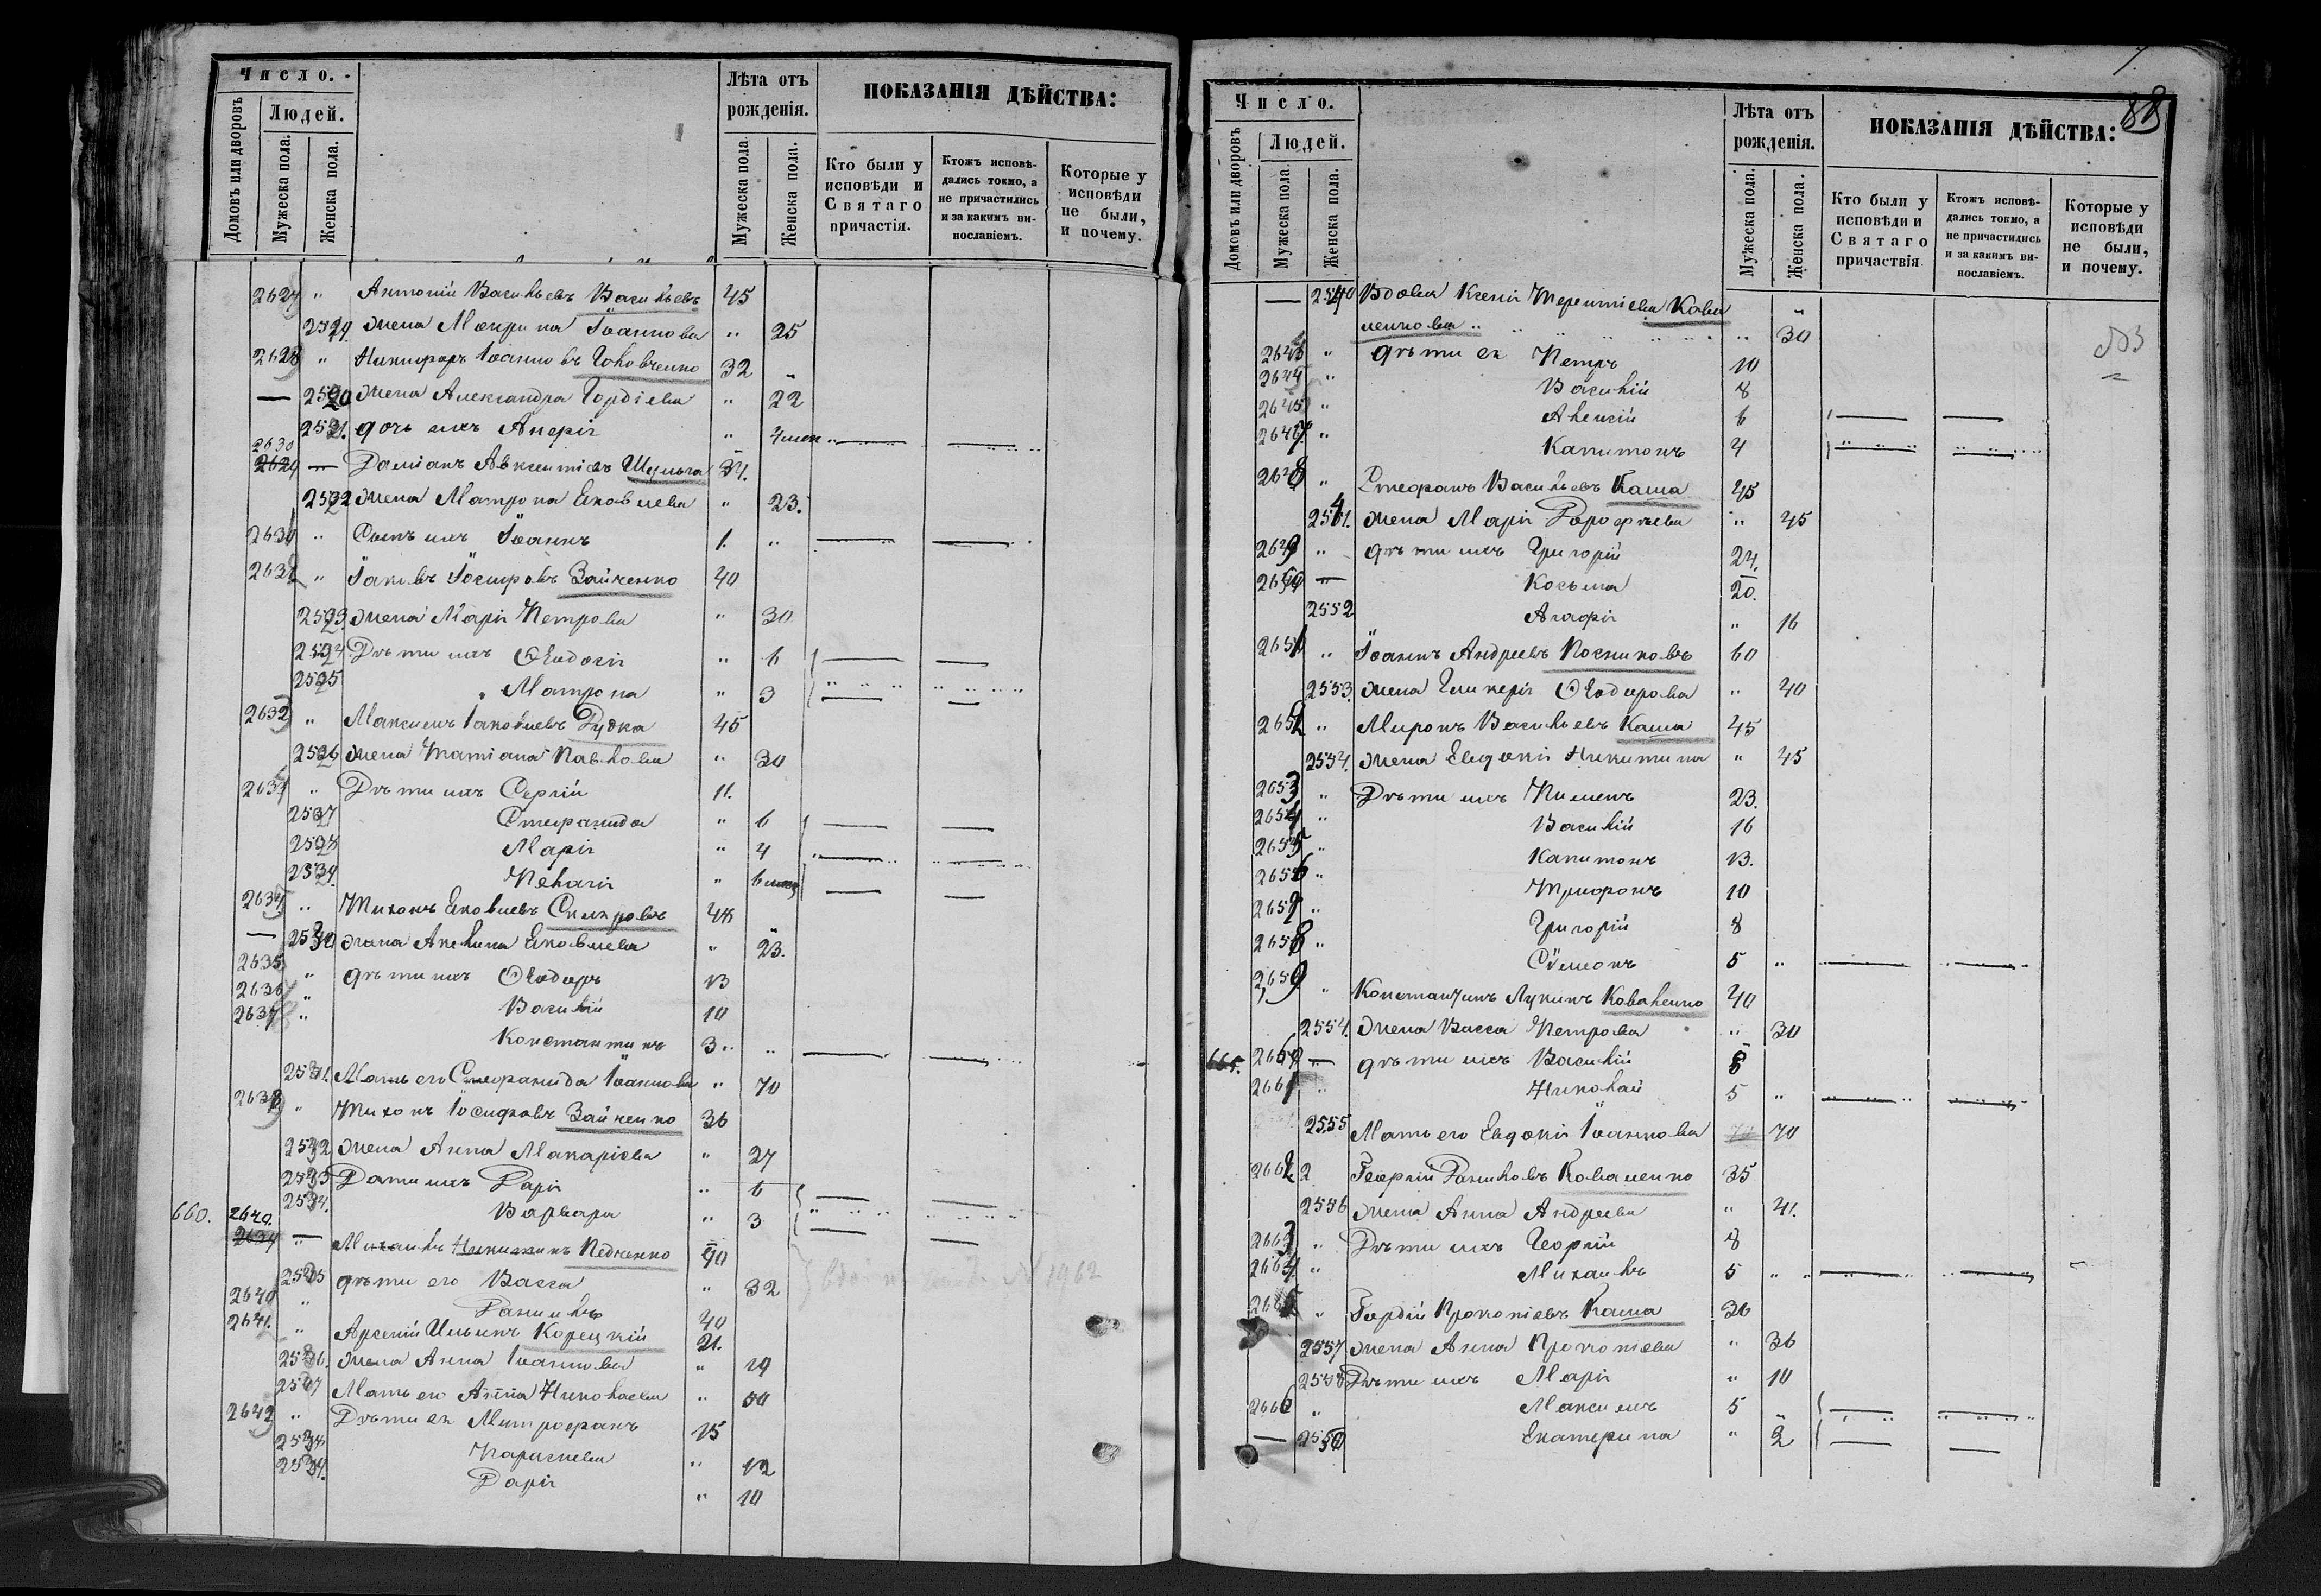 Число.
Домовъ или дворовъ
Людей.
Мужеска пола.
Женска пола.
Лѣта отъ рожденія.
Мужеска пола
Женска пола.
ПОКАЗАНІЯ ДѢЙСТВА:
Кто были у исповѣди и Святаго причастія.
Ктожъ исповѣдались токмо, а не причастились и за какимъ винословіемъ.
Которые у исповѣди не были, и почему.
Антоній Васильевъ Васильевъ 45
жена Макрина Іоаннова " 25
Никифоръ Іоанновъ 32
жена Александра Гордіева " 22
дочь ихъ "
Даміанъ Авксентіевъ Шульга 34.
2532 жена Матрона Яковлева " 23.
Сынъ ихъ Іоаннъ 1. "
Іаковъ Іосифовъ Зайченко 40
жена Марія Петрова " 30
Дѣти ихъ Ѳеодосія " 6
Матрона " 3
Максимъ Іаковлевъ Дудка 45
жена Татіана Павлова " 30
Дѣти ихъ Сергій 11.
Стефанида " 6
Марія " 4
Пелагія " 6 мес
Тихонъ Яковлевъ
жена Акелина Яковлева " 23.
2635 " дѣти ихъ Ѳеодоръ 13
Василій 10
Константинъ 3 "
Мать его Стефанида Іоаннова " 70
Тихонъ Іосифовъ Зайченко 36
жена Анна Макаріева " 27
Дѣти ихъ Дарія " 6
Варвара " 3
660. 2640.
Михаилъ Никитинъ Педченко 90
дѣти его Васса " 32
Даніилъ 40
2641. " Арсеній Ильинъ Корецкій 21.
жена Анна Іоаннова " 19
Мать его Анна Николаева " 50
Дѣти ея Митрофанъ 15
Параскева " 12
Дарія " 10
№ 1962
88
Число.
Домовъ или дворовъ
Людей.
Мужеска пола
Женска пола.
Лѣта отъ рожденія.
Мужеска пола.
Женска пола.
ПОКАЗАНІЯ ДѢЙСТВА:
Кто были у исповѣди и Святаго причаствія
Ктожъ исповѣдались токмо, а не причастились и за какимъ винословіемъ.
Которые у исповѣди не были, и почему.
Вдова Ксенія Терентіева Кова
ленкова " 30
дѣти ея Петръ 10
2644 " Василій 8
2645 " Алексій 6
Капитонъ 4
Стефанъ Васильевъ Каша 45
жена Марія Дорофѣева " 45
2649 " дѣти ихъ Григорій 24.
Косьма 20.
2552 Агафія " 16
2651 " Іоаннъ Андреевъ Посниковъ 60
2553. жена Гликерія Ѳеодорова " 40
2652 " Миронъ Васильевъ Каша 45
2554. жена Евдокія Никитина " 45
2653 " Дѣти ихъ Пименъ 23.
2654 " Василій 16
2655 " Капитонъ 13.
2656 " Трифонъ 10
2657 " Григорій 8
2658 " Сѵмеонъ 5 "
2659 " Константинъ Лукинъ Коваленко 40
2554. жена Васса Петрова " 30
665. дѣти ихъ Василій 8
2661 " Николай 5 "
2555 Мать его Евдокія Іоаннова 70
2662 Георгій Даниловъ Коваленко 35
2556 жена Анна Андреева " 41.
2663 " Дѣти ихъ Георгій 8
2664 " Михаилъ 5 "
Гордій Прокопіевъ Каша 36
2557 жена Анна Прокопіева " 36
2558 Дѣти ихъ Марія " 10
2666 " Максимъ 5 "
Екатерина " 2